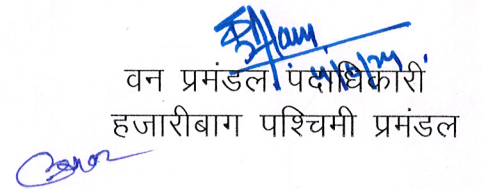 वन प्रमंडल पदाधिकारी
हजारीबाग पश्चिमी प्रमंडल